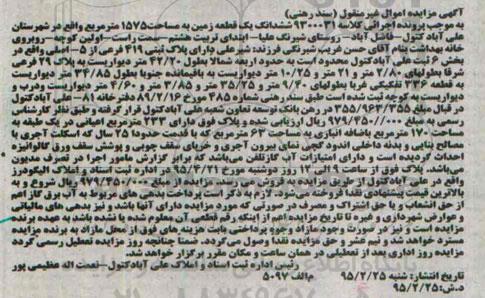 آگهی مزایده اموال غیرمنقول (سند رهنی)
به موجب پرونده اجرائی کلاسه ۹۳۰۰۰۳۱ ششدانگ یک قطعه زمین به مساحت ۱۵۷۵ مترمربع واقع در شهرستان
علی آباد کتول-فاضل آباد- روستای شیرنگ علیا- ابتدای تربیت هشتم- سمت راست- اولین کوچه- روبروی
خانه بهداشت بنام آقای حسن غریب شیرنگی فرزند: شیرعلی دارای پلاک ثبتی ۴۱۹ فرعی از ۵- اصلی واقع در
بخش ۶ ثبت علی آباد کتول محدود است به حدود اربعه شمالا بطول ۴۲/۲۰ متر دیواریست به پلاک ۲۹ فرعی
شرقا بطولهای ۲/۸۰ متر و ۲۱ متر و ۱۰/۲۵ متر دیواریست به باقیمانده جنوبا بطول ۳۴/۸۵ متر دیواریست
به قطعه ۳۳۶ تفکیکی غربا بطولهای ۹/۴۰ متر و ۳۵/۲۵ متر و ۳/۸۵ متر و ۴/۶۰ متر دیواریست و درب و
دیواریست به کوچه ثبت شده است طبق سند رهنی شماره ۴۸۵ مورخ ۸۹/۲/۱۶ دفترخانه ۸۱- علی آبادکتول
در قبال مبلغ ۳۵۵/۹۶۳/۳۵۵ در رهن بانک توسعه تعاون شعبه علی آبادکتول قرار گرفته و طبق نظر کارشناس
رسمی به مبلغ ۹۷۹/۴۵۰/۰۰۰ ریال ارزیابی شده و پلاک فوق دارای ۲۳۳ مترمربع اعیانی در یک طبقه به
مساحت ۱۷۰ مترمربع باضافه انباری به مساحت ۶۳ مترمربع که با قدمت حدودا ۲۵ سال که اسکلت آجری با
مصالح بنایی و بدنه داخلی اندود گچی نمای بیرون آجری و خرپای سقف چوبی و پوشش سقف ورق گالوانیزه
احداث گردیده است و دارای امتیازات آب گازتلفن می‌باشد که برابر گزارش مامور اجرا در تصرف مدیون
می‌باشد، پلاک فوق از ساعت ۹ الی ۱۲ روز دوشنبه مورخ ۹۵/۳/۲۱ در اداره ثبت اسناد و املاک الیکودرز
واقع در علی آبادکتول از طریق مزایده به فروش می رسد. مزایده از مبلغ ۹۷۹/۴۵۰/۰۰۰ ریال شروع و به
بالاترین قیمت پیشنهادی نقدا فروخته می‌شود. لازم به ذکر است پرداخت بدهی های مربوطه به آب برق گاز اعم
از حق انشعاب و یا حق اشتراک و مصرف در صورتی که مورد مزایده دارای آنها باشد و نیز بدهی های مالیاتی
و عوارض شهرداری و غیره تا تاریخ مزایده اعم از اینکه رقم قطعی آن معلوم شده یا نشده باشد به عهده برنده
مزایده است و نیز در صورت وجود مازاد وجوه پرداختی بابت هزینه های فوق از محل مازاد به برنده مزایده
مسترد خواهد شد و نیم عشر و حق مزایده نقدا وصول می‌گردد. ضمنا چنانچه روز مزایده تعطیل رسمی گردد
مزایده روز اداری بعد از تعطیلی در همان ساعت و مکان مقرر برگزار خواهد شد.
رئیس اداره ثبت اسناد و املاک علی آبادکتول- نعمت اله عظیمی پور
تاریخ انتشار: شنبه ۹۵/۲/۲۵ م‌الف ۵۰۹۷
د.ش: ۹۵/۲/۲۵